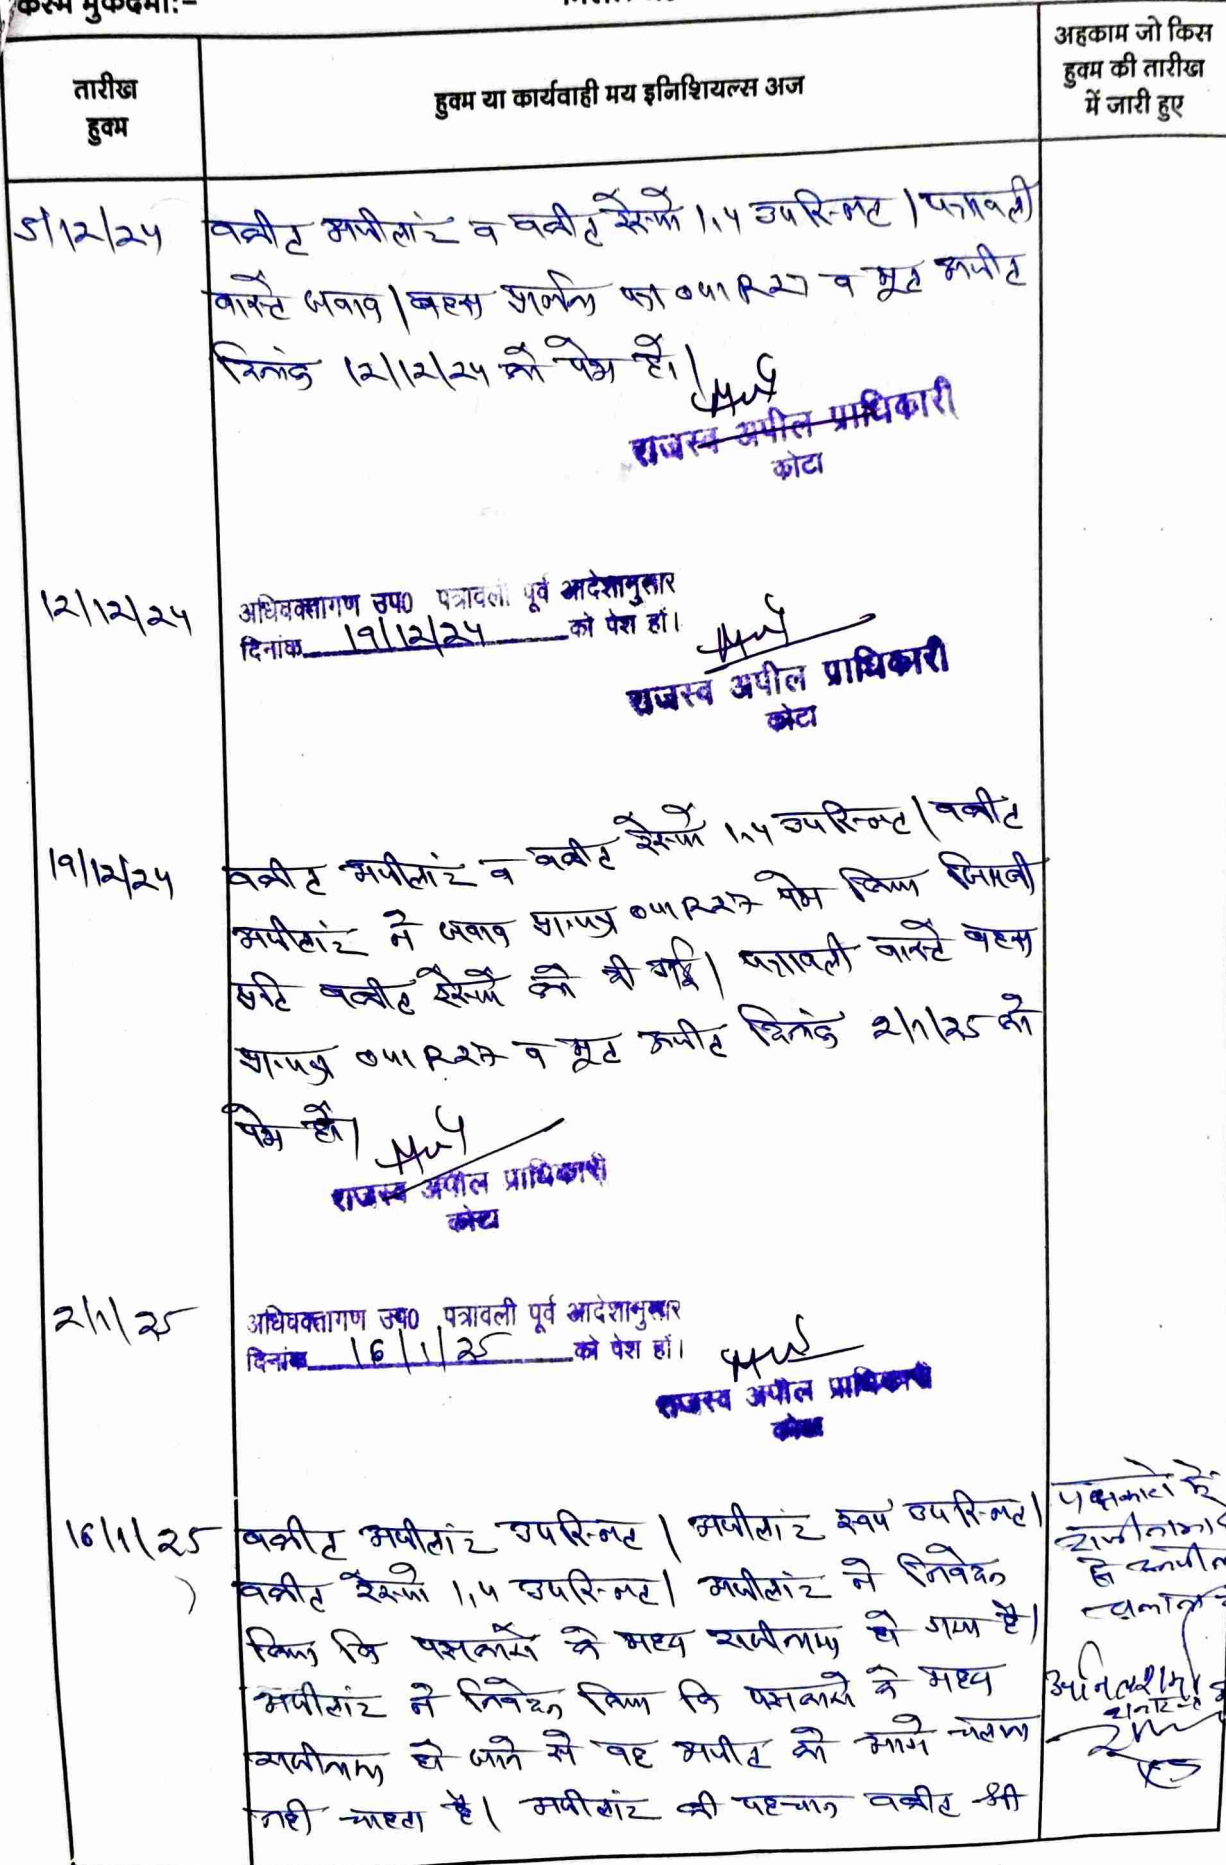 किस्म मुकदमा:-
तारीख
हुक्म
हुक्म या कार्यवाही मय इनिशियल्स अज
अहकाम जो किस
हुक्म की तारीख
में जारी हुए
5/12/24
वकील अपीलांट व वकील रेस्पो 1,4 उपस्थित। पत्रावली
वास्ते जवाब/बहस प्रार्थना पत्र O41R27 व मूल अपील
दिनांक 12/12/24 को पेश हो।
राजस्व अपील प्राधिकारी
कोटा
12/12/24
अधिवक्तागण उप0 पत्रावली पूर्व आदेशानुसार
दिनांक 19/12/24 को पेश हों।
राजस्व अपील प्राधिकारी
कोटा
19/12/24
वकील अपीलांट व वकील रेस्पो 1,4 उपस्थित। वकील
अपीलांट ने जवाब प्रा.पत्र O41R27 पेश किया जिसकी
प्रति वकील रेस्पो को दी गई। पत्रावली वास्ते बहस
प्रा.पत्र O41R27 व मूल अपील दिनांक 2/1/25 को
पेश हो।
राजस्व अपील प्राधिकारी
कोटा
2/1/25
अधिवक्तागण उप0 पत्रावली पूर्व आदेशानुसार
दिनांक 16/1/25 को पेश हों।
राजस्व अपील प्राधिकारी
कोटा
16/1/25
वकील अपीलांट उपस्थित। अपीलांट स्वयं उपस्थित।
वकील रेस्पो 1,4 उपस्थित। अपीलांट ने निवेदन
किया कि पक्षकारो के मध्य राजीनामा हो गया है।
अपीलांट ने निवेदन किया कि पक्षकारो के मध्य
राजीनामा हो जाने से वह अपील को आगे चलाना
नही चाहता है। अपीलांट की पहचान वकील श्री
पक्षकारो में
राजीनामा
अपील
चलाना
अनिल शर्मा